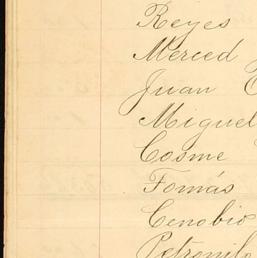 Reyes
Merced
Juan
Miguel
Cosme
Tomás
Cenobio
Petronilo